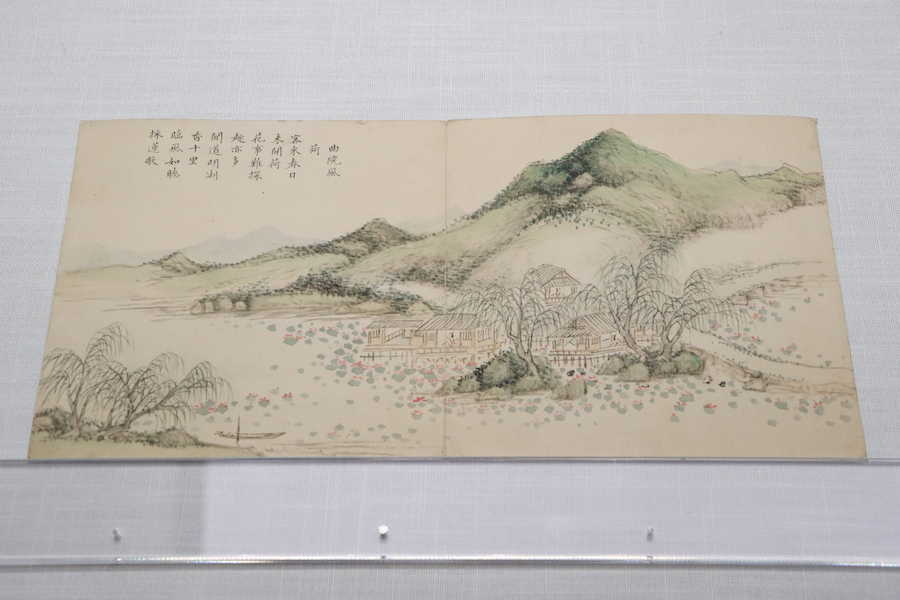 曲院風
荷
客來春日
未開荷
花事難探
趣亦多
聞道明湖
香十里
臨風如聽
採蓮歌